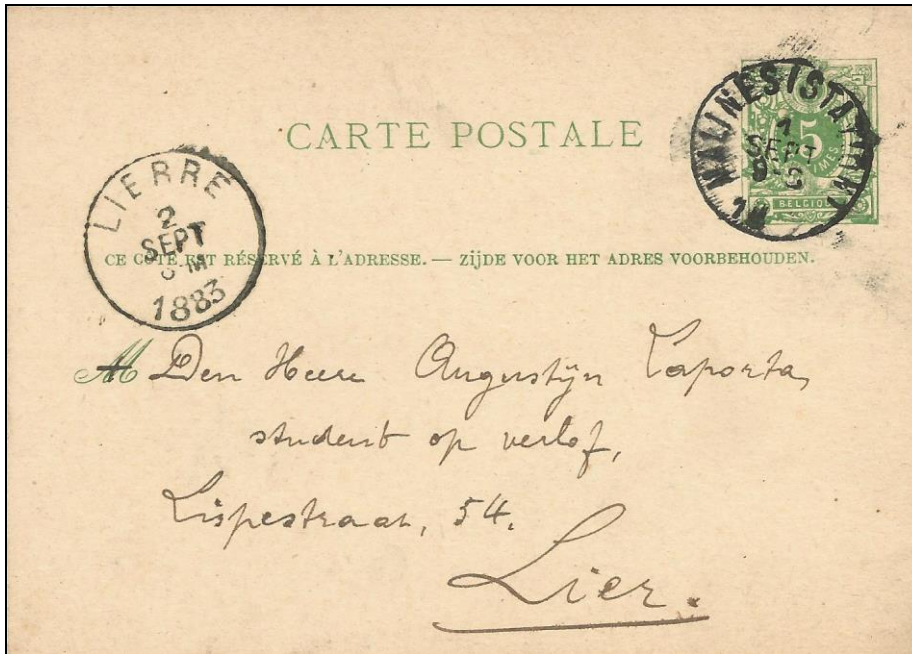 CARTE POSTALE
5
BELGIQUE
1 SEPT
LIERRE
2
SEPT
1883
CE COTÉ EST RÉSERVÉ À L'ADRESSE. — ZIJDE VOOR HET ADRES VOORBEHOUDEN.
M Den Heere Augustijn Laporta,
student op verlof,
Lispestraat, 54.
Lier.